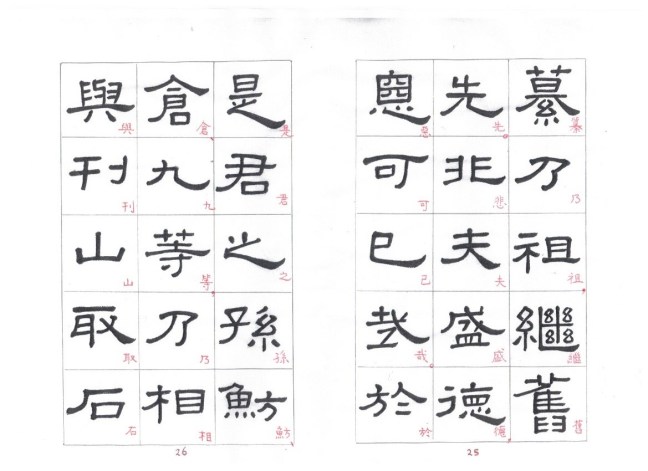 纂乃祖繼舊
纂乃祖,繼舊
先非夫盛德
先。悲夫盛德,
惡可已哉於
惡可已哉。於
25
是君之孫魴
是君之孫魴,
倉九等乃相
倉,九等,乃相
與刊山取石
與刊山取石
26